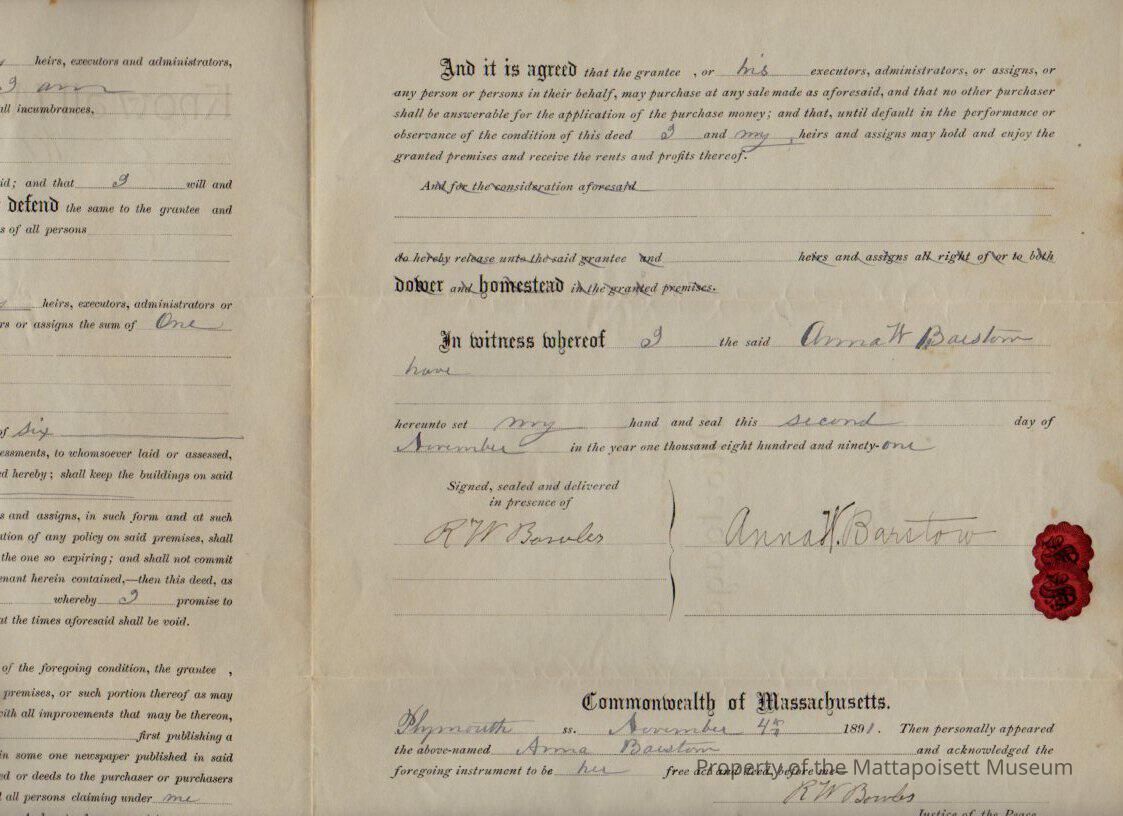 heirs, executors and administrators,
I am
all incumbrances,
id; and that I will and
defend the same to the grantee and
s of all persons
heirs, executors, administrators or
rs or assigns the sum of One
of six
essments, to whomsoever laid or assessed,
ed hereby; shall keep the buildings on said
s and assigns, in such form and at such
ation of any policy on said premises, shall
the one so expiring; and shall not commit
enant herein contained,—then this deed, as
whereby I promise to
at the times aforesaid shall be void.
of the foregoing condition, the grantee ,
premises, or such portion thereof as may
with all improvements that may be thereon,
first publishing a
in some one newspaper published in said
ed or deeds to the purchaser or purchasers
all persons claiming under me
And it is agreed that the grantee , or his executors, administrators, or assigns, or
any person or persons in their behalf, may purchase at any sale made as aforesaid, and that no other purchaser
shall be answerable for the application of the purchase money; and that, until default in the performance or
observance of the condition of this deed I and my heirs and assigns may hold and enjoy the
granted premises and receive the rents and profits thereof.
And for the consideration aforesaid
do hereby release unto the said grantee and heirs and assigns all right of or to both
dower and homestead in the granted premises.
In witness whereof I the said Anna W Barstow
have
hereunto set my hand and seal this second day of
November in the year one thousand eight hundred and ninety-one
Signed, sealed and delivered
in presence of
R W Bowles
Anna W. Barstow
Commonwealth of Massachusetts.
Plymouth ss. November 4th 1891. Then personally appeared
the above-named Anna Barstow and acknowledged the
foregoing instrument to be her free act and deed, before me—
Property of the Mattapoisett Museum
R W Bowles
Justice of the Peace